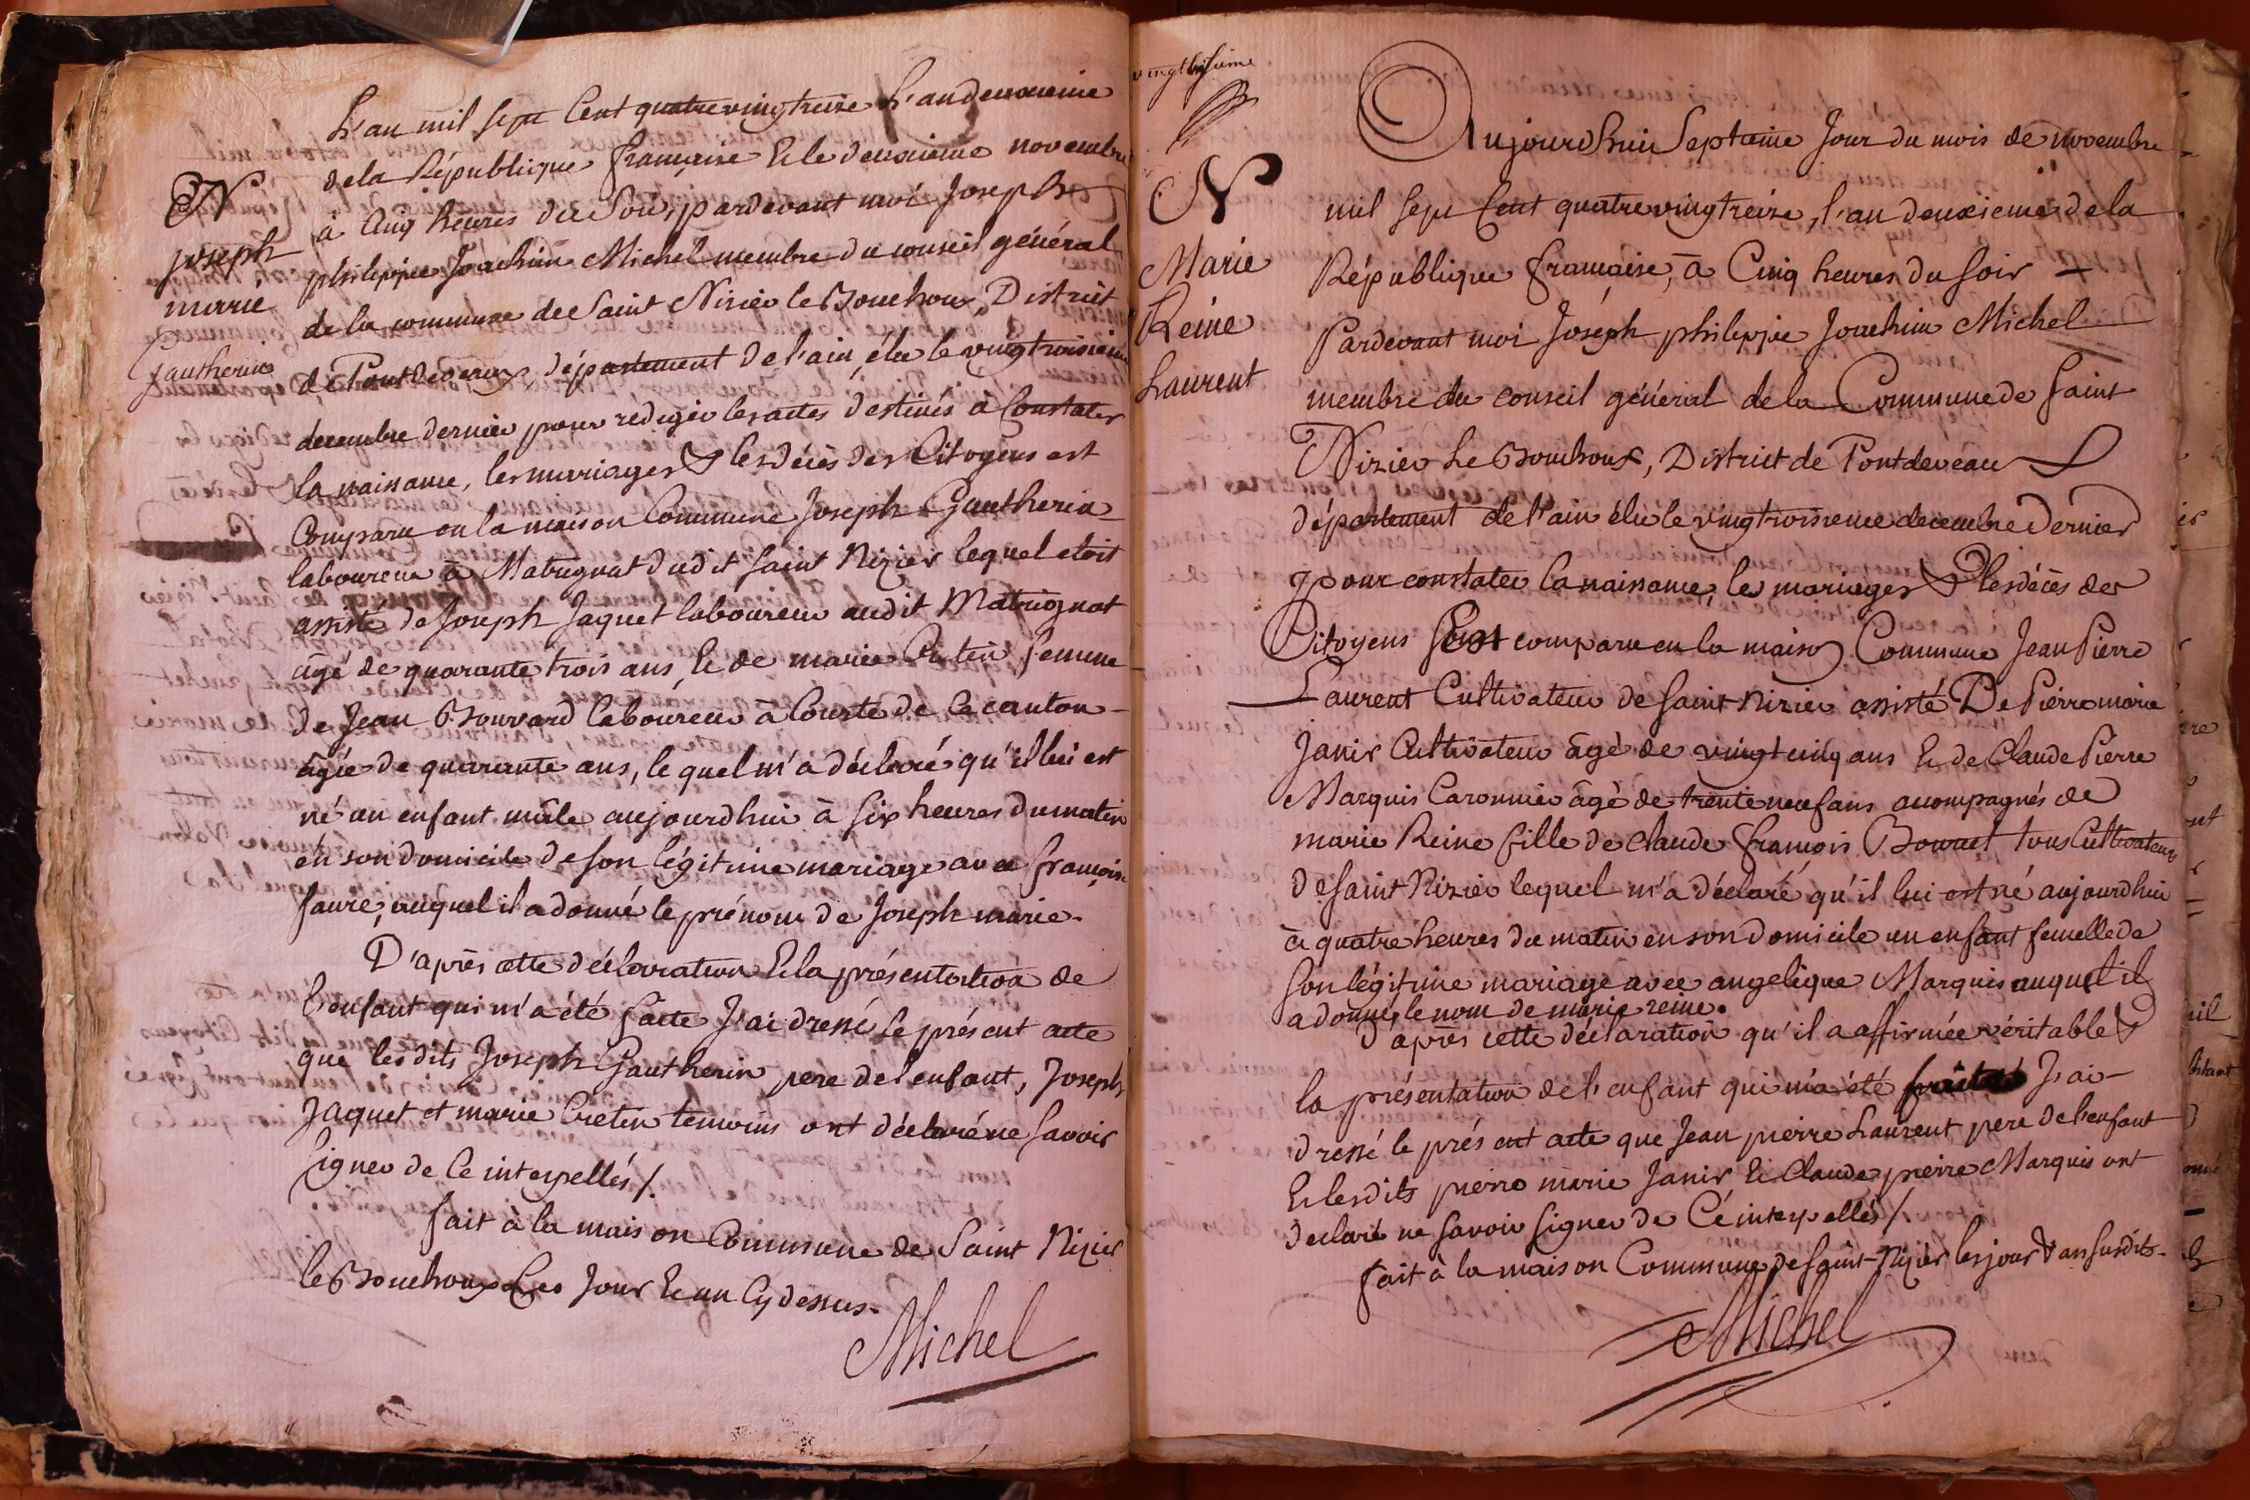 L'an mil sept Cent quatrevingtreize L'an deuxieme
de la République française Et le deuxieme novembre
à Cinq heures du Soir, pardevant moi Joseph
philippe Joachim Michel membre du conseil général
de la commune de Saint Nizier le Bouchoux, District
de Pontdevaux, département de l'ain, élu le vingtroisieme
decembre dernier pour rédiger les actes destinés à Constater
la naissance, les mariages & les décès des Citoyens est
Comparu en la maison Commune Joseph Gautherin
laboureur à Matrignat dudit Saint Nizier lequel etoit
assisté de Joseph Jaquet laboureur audit Matrignat
âgé de quarante trois ans, Et de marie Cretin femme
de Jean Bouvard laboureur à Courte de Ce canton
âgée de quarante ans, lequel m'a déclaré qu'il lui est
né un enfant mâle aujourdhui à six heures du matin
en son domicile de son légitime mariage avec françoise
faure, auquel il a donné le prénom de Joseph marie.
D'après cette déclaration Et la présentation de
L'enfant qui m'a été faite J'ai dressé le présent acte
que lesdits Joseph Gautherin pere de l'enfant, Joseph
Jaquet et marie Crétin temoins ont déclaré ne savoir
signer de Ce interpellés /.
fait à la maison Commune de Saint Nizier
le Bouchoux Les Jour Et an Cy dessus.
Michel
N
joseph
marie
gautherin
vingthuitieme
N
Marie
Reine
Laurent
Aujourdhui Septieme Jour du mois de novembre
mil sept Cent quatrevingtreize, l'an deuxieme de la
République française, à Cinq heures du soir
Pardevant moi Joseph philippe Joachim Michel
membre du conseil général de la Commune de Saint
Nizier Le Bouchoux, District de Pontdeveau
département de l'ain élu le vingtroisieme decembre Dernier
pour constater la naissance, les mariages & les décès des
Citoyens sont comparu en la maison Commune Jean Pierre
Laurent Cultivateur de Saint Nizier assisté De Pierre marie
Janir Cultivateur âgé de vingt cinq ans Et de Claude Pierre
Marquis Caronnier âgé de trente neuf ans acompagnés de
marie Reine fille de Claude françois Bouvet tous Cultivateurs
de Saint Nizier lequel m'a déclaré qu'il lui est né aujourdhui
à quatre heures du matin en son domicile un enfant femelle de
son légitime mariage avec angelique Marquis auquel il
a donné le nom de marie reine.
d'après cette déclaration qu'il a affirmée véritable &
la présentation de l'enfant qui m'a été J'ai
dressé le présent acte que Jean pierre Laurent pere de l'enfant
Et lesdits pierre marie Janir Et Claude pierre Marquis ont
declaré ne savoir signer de Cé interpellés /
fait à la maison Commune de Saint-Nizier les jour & an susdits.
Michel